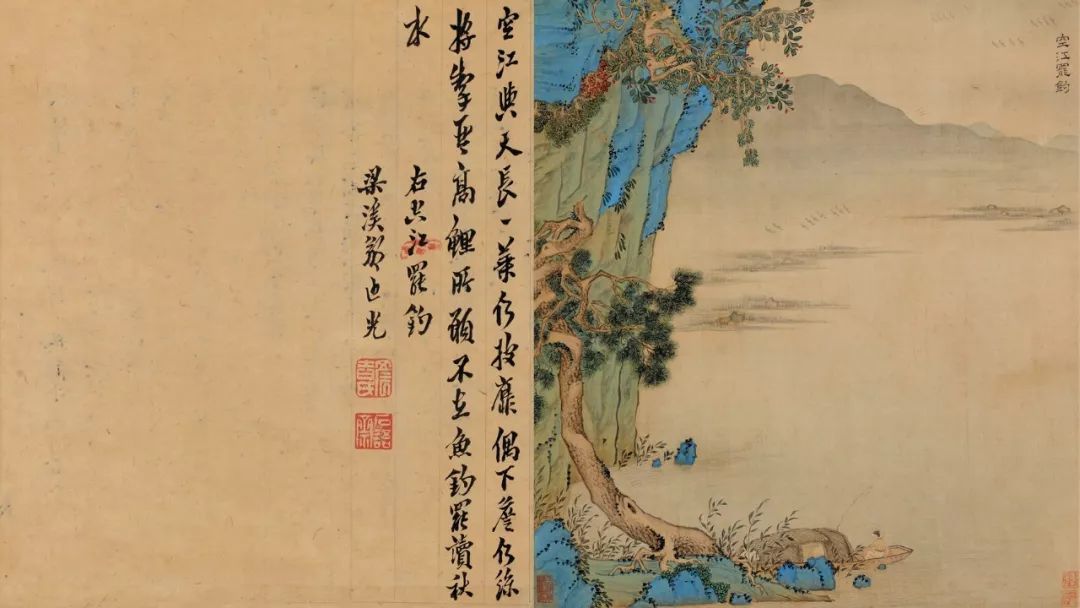 空江罷釣
空江與天長一葉何披靡偶下詹何綸
將琴高鯉所願不在魚釣罷讀秋
水
右空江罷釣
梁溪鄒迪光